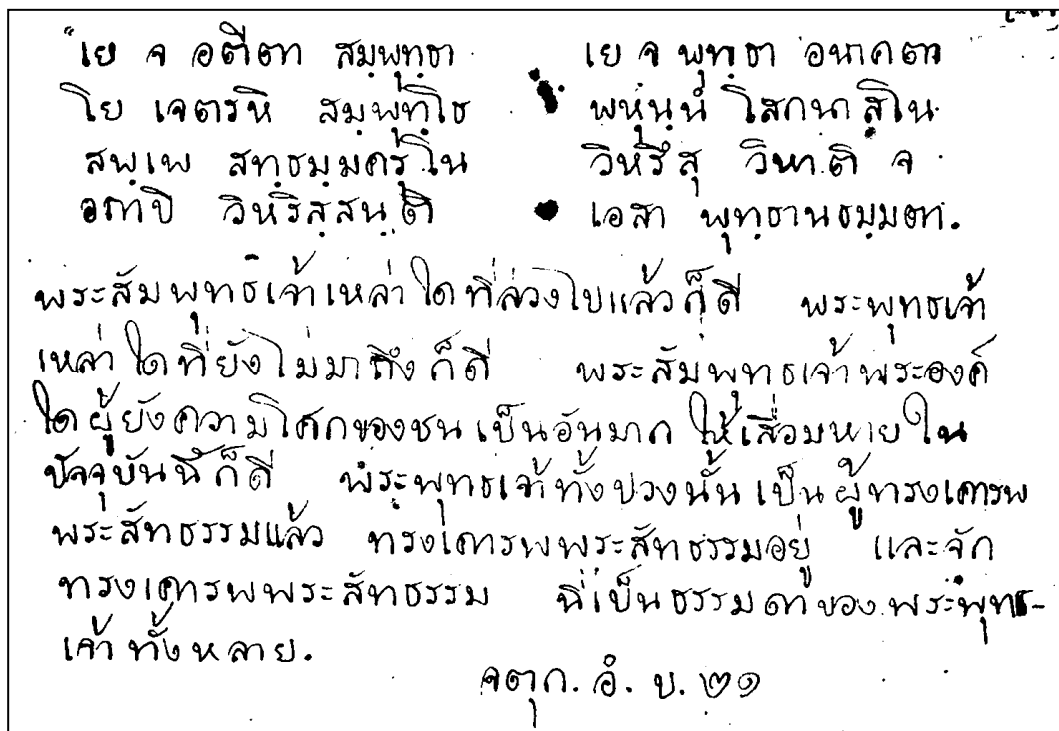 "เย จ อตีตา สมฺพุทฺธา เย จ พุทฺธา อนาคตา
โย เจตรหิ สมฺพุทฺโธ พหุนฺนํ โสกนาสิโน
สพฺเพ สทฺธมฺมครุโน วิหรึสุ วิหาติ จ
อถาปิ วิหริสฺสนฺติ เอสา พุทฺธานธมฺมตา.
พระสัมพุทธเจ้าเหล่าใดที่ล่วงไปแล้วก็ดี พระพุทธเจ้า
เหล่าใดที่ยังไม่มาถึงก็ดี พระสัมพุทธเจ้าพระองค์
ใดผู้ยังความโศกของชนเป็นอันมาก ให้เสื่อมหายใน
ปัจจุบันนี้ก็ดี พระพุทธเจ้าทั้งปวงนั้นเป็นผู้ทรงเคารพ
พระสัทธรรมแล้ว ทรงเคารพพระสัทธรรมอยู่ และจัก
ทรงเคารพพระสัทธรรม นี่เป็นธรรมดาของพระพุทธ-
เจ้าทั้งหลาย.
จตุก. อํ. บ. ๒๑